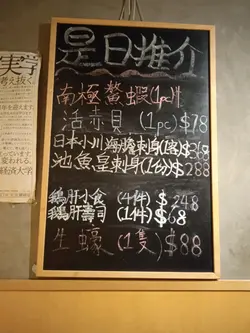 是日推介
南極螯蝦(1pc)
活赤貝 (1pc)$78
日本小川海膽刺身(客)$360
池魚皇刺身(1份)$288
鵝肝小食 (4件)$248
鵝肝壽司 (1件)$68
生蠔 (1隻)$88
実学
考え抜く。
変われる。
経済大学